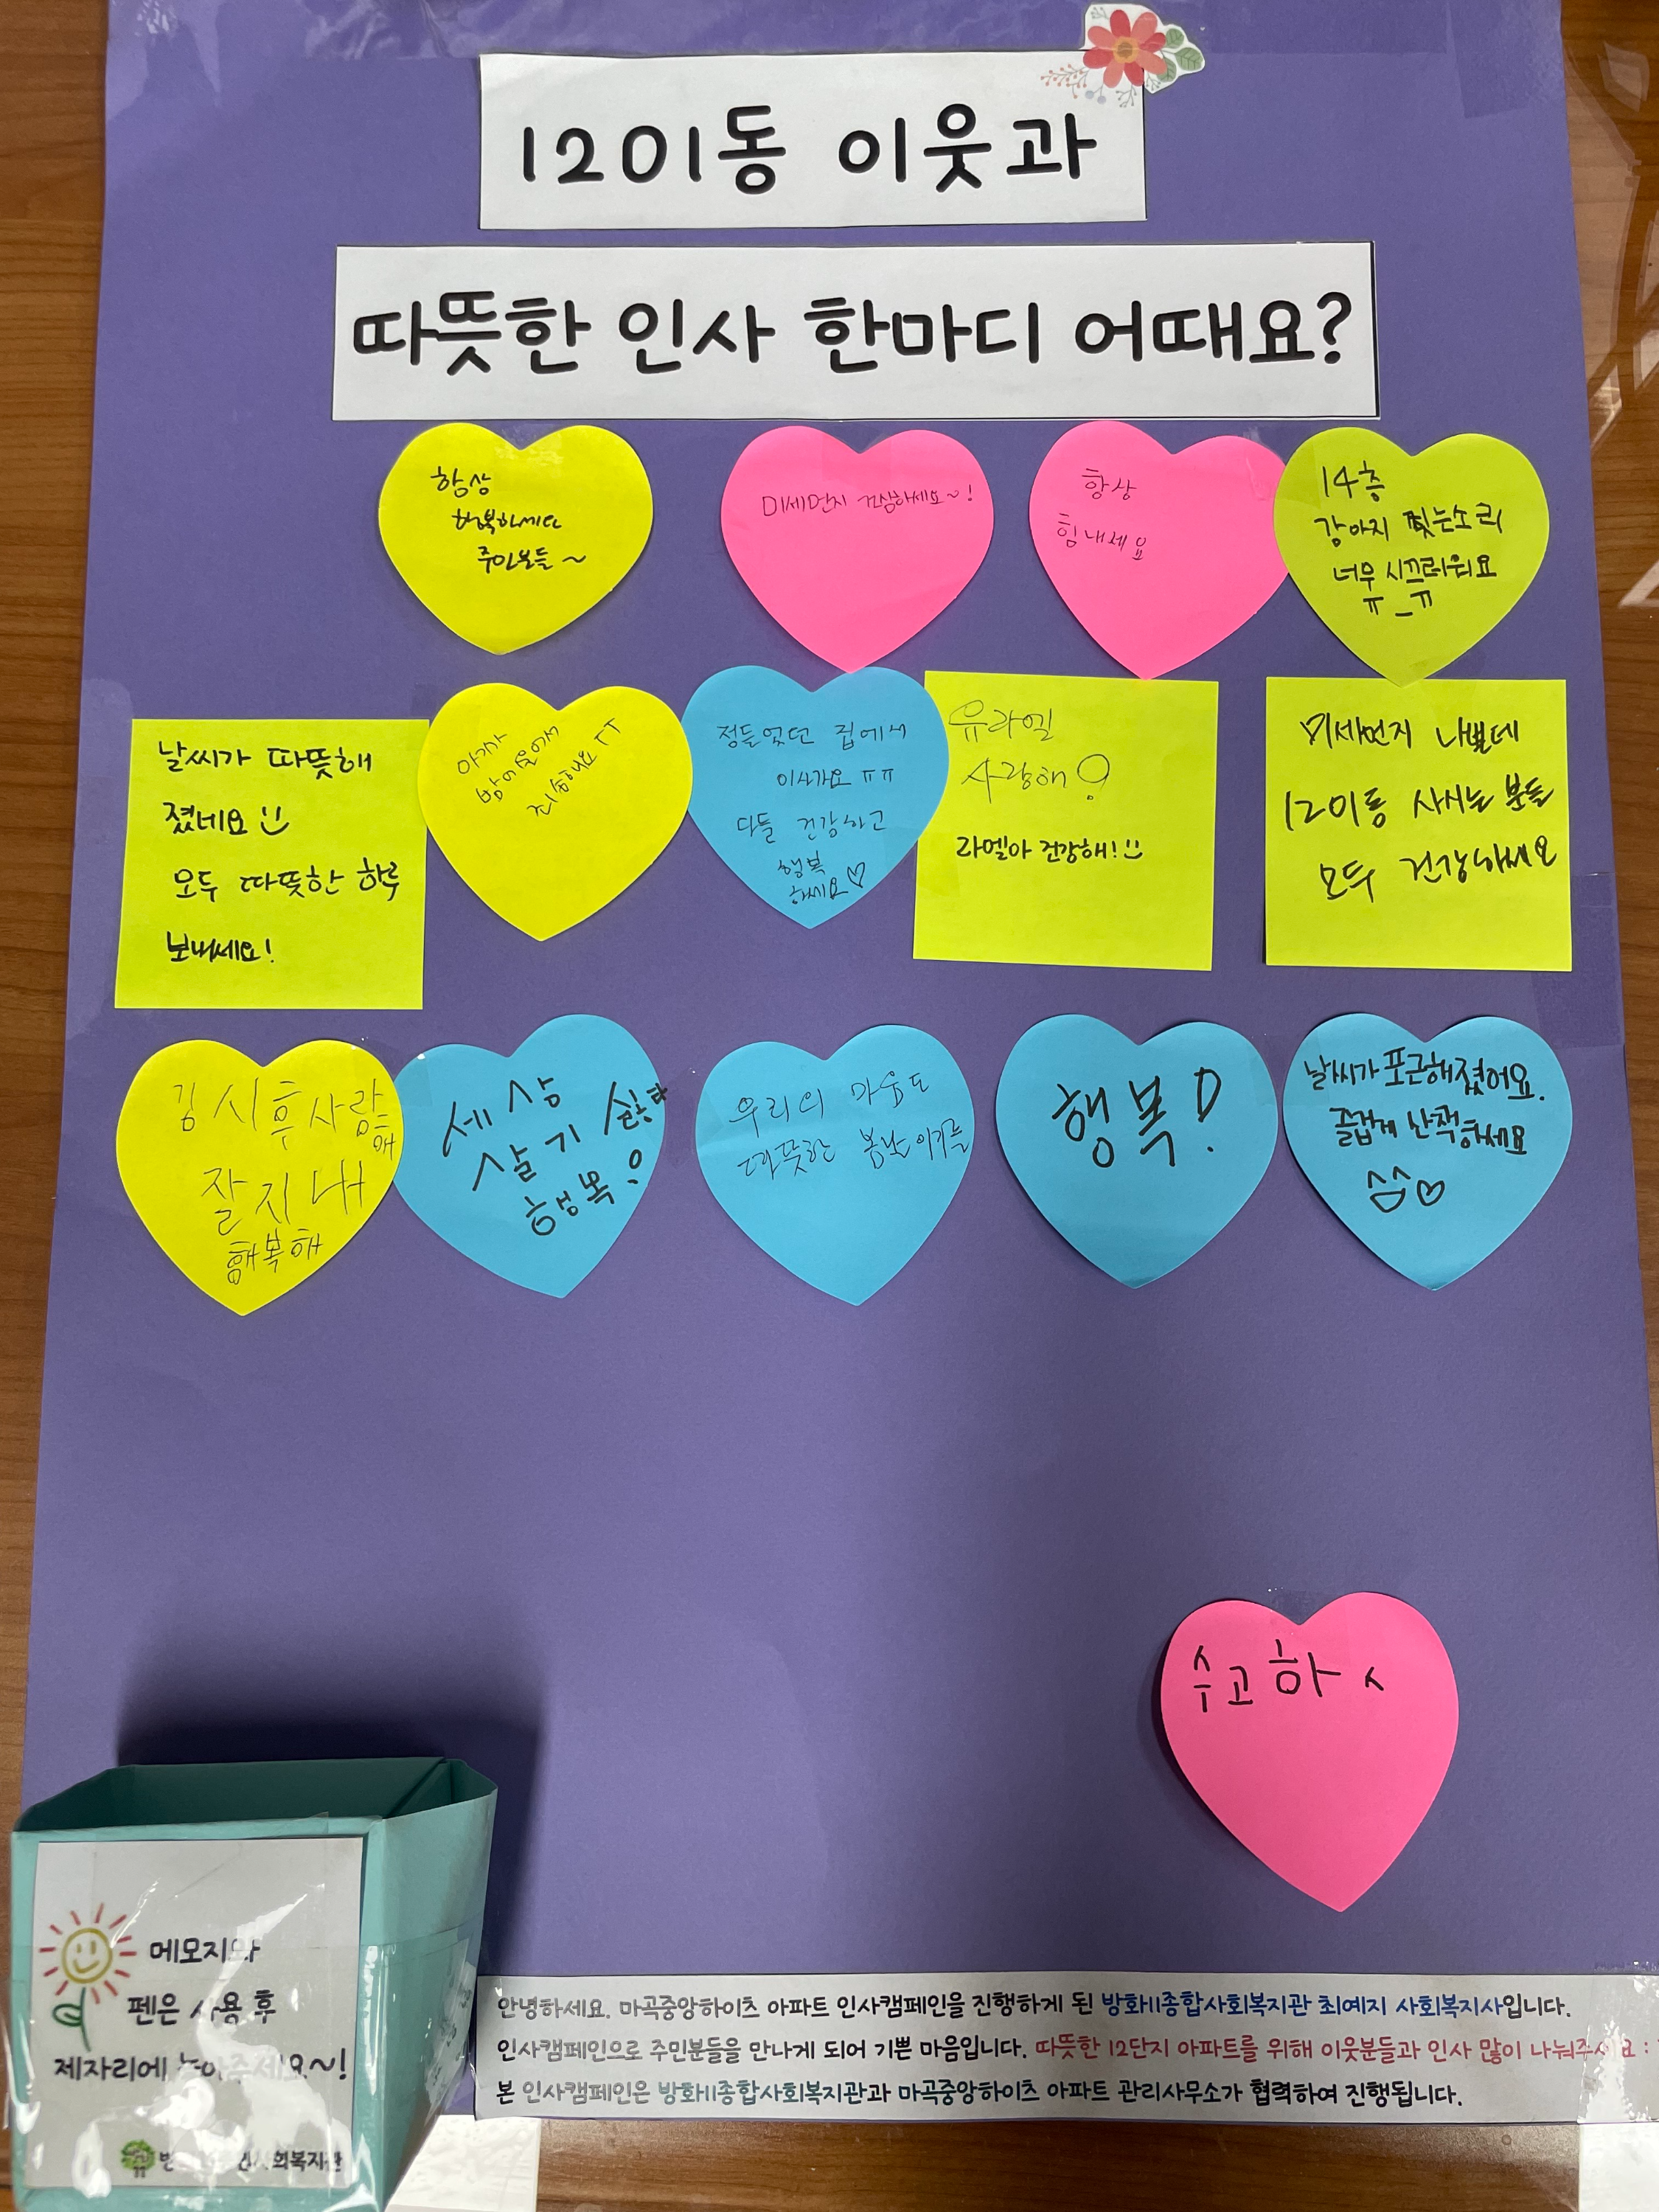 1201동 이웃과
따뜻한 인사 한마디 어때요?
항상
행복하세요
주민분들~
미세먼지 조심하세요~!
항상
힘내세요
14층
강아지 찢는소리
너무 시끄러워요
ㅠ_ㅠ
날씨가 따뜻해
졌네요
모두 따뜻한 하루
보내세요!
아가가
많이 울어서
죄송해요 ㅜㅜ
정들었던 집에서
이사가요 ㅠㅠ
다들 건강하고
행복
하세요♡
유라엘
사랑해!
라엘아 건강해!
미세먼지 나쁠데
1201동 사시는 분들
모두 건강하세요
김시후사랑
해
잘지내
행복해
세상
살기 싫다
행복!
우리의 마음도
따뜻한 봄날이기를
행복!
날씨가 포근해졌어요.
즐겁게 산책하세요
♡
수고하ㅅ
메모지와
펜은 사용 후
제자리에 놓아주세요~!
안녕하세요. 마곡중앙하이츠 아파트 인사캠페인을 진행하게 된 방화11종합사회복지관 최예지 사회복지사입니다.
인사캠페인으로 주민분들을 만나게 되어 기쁜 마음입니다. 따뜻한 12단지 아파트를 위해 이웃분들과 인사 많이 나눠주세요 :
본 인사캠페인은 방화11종합사회복지관과 마곡중앙하이츠 아파트 관리사무소가 협력하여 진행됩니다.